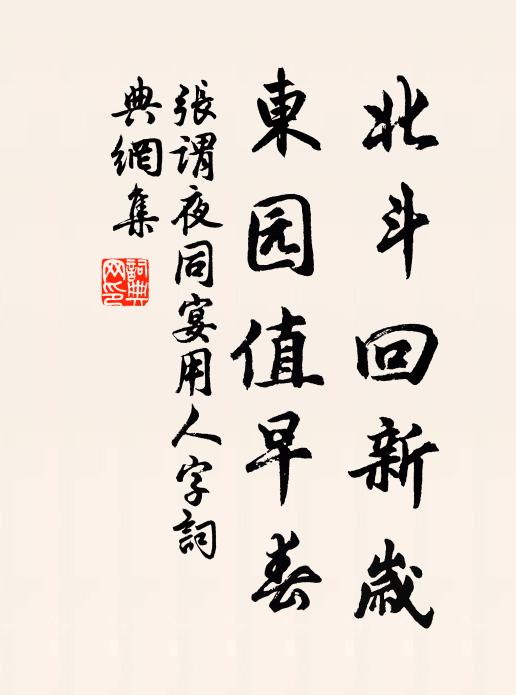 北斗回新歲
東园值早春
張謂夜同宴用人字詞
典網集
詞典
网印